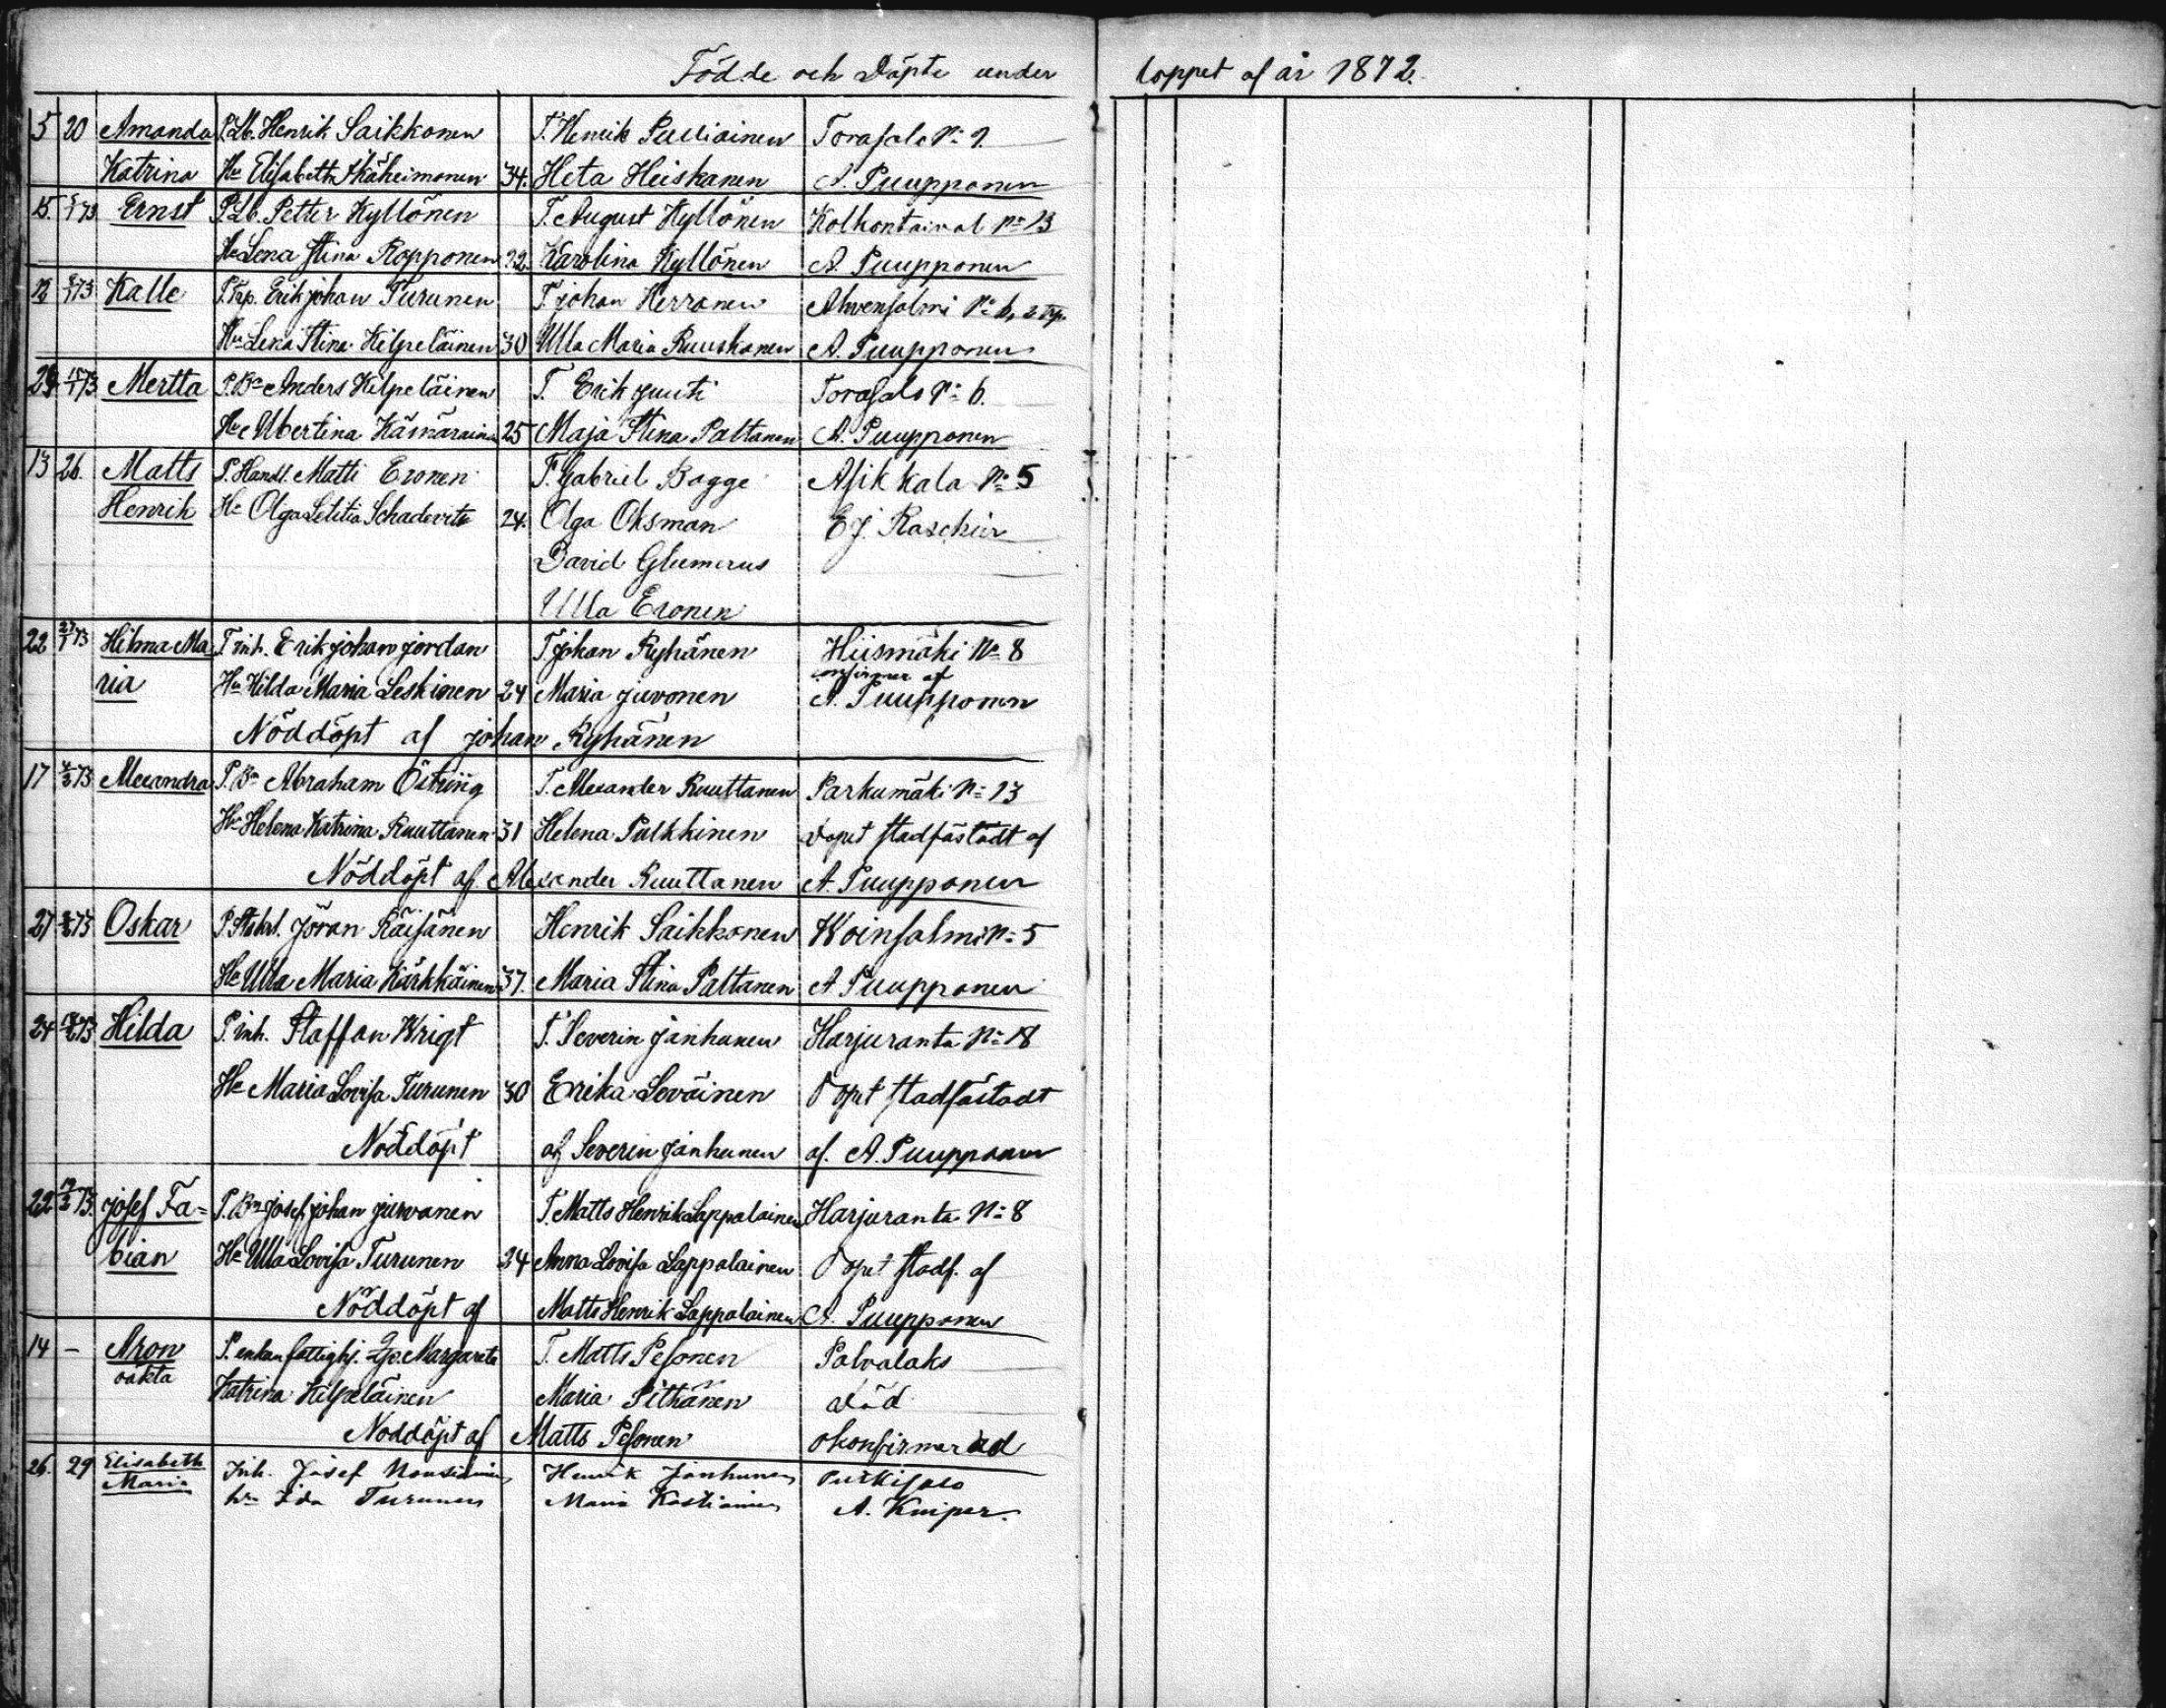 Födde och Döpte under loppet af år 1872.
5 20 Amanda P. Lb. Henrik Saikkonen T. Henrik Pulliainen Torasalo No 9.
Katrina Hu Elisabeth Käheimonen 34. Heta Heiskanen A. Puupponen
15. 5/1 73 Ernst P. Lb. Petter Kyllönen T. August Kyllönen Kolkontaival No 13
Hu Lena Stina Ropponen 22. Karolina Kyllönen A. Puupponen
12 73 Kalle P. Trp. Erik Johan Turunen T. Johan Herranen Ahvensalmi No 6,
Hu Lena Stina Kilpeläinen 30 Ulla Maria Ruuskanen A. Puupponen
29. 73 Mertta P. Bn Anders Kilpeläinen T. Erik Juuti Torasalo No 6.
Hu Albertina Kämäräinen 25 Maja Stina Pattanen A. Puupponen
13 26. Matts P. Handl. Matti Eronen T. Gabriel Bagge Asikkala No 5
Henrik Hu Olga Letitia Schadevitz 24. Olga Oksman E J. Raschier
David Glumerus
Ulla Eronen
22 27/1 73 Hilma Ma- P. inh. Erik Johan Jordan T. Johan Ryhänen Hiismäki No 8
ria Hu Hilda Maria Leskinen 24 Maria Juvonen af A. Puupponen
Nöddöpt af Johan Ryhänen
17 4/3 73 Alexandra P. Bn Abraham Östring T. Alexander Ruuttanen Parkumäki No 13
Hu Helena Katrina Ruuttanen 31 Helena Pulkkinen Dopet stadfästadt af
Nöddöpt af Alexander Ruuttanen A. Puupponen
27 73 Oskar P. Jöran Räisänen Henrik Saikkonen Woinsalmi No 5
Hu Ulla Maria Kärkkäinen 37. Maria Stina Pattanen A Puupponen
24 73 Hilda P. inh. Staffan Wrigt T. Severin Janhunen Harjuranta No 18
Hu Maria Lovisa Turunen 30 Erika Leväinen Dopet stadfästadt
Nöddöpt af Severin Janhunen af. A. Puupponen
22 19/2 73. Josef Fa= P. Bn Josef Johan Jurvanen T. Matts Henrik Lappalainen Harjuranta No 8
bian Hu Ulla Lovisa Turunen 24 Anna Lovisa Lappalainen Dopet stadf. af
Nöddöpt af Matts Henrik Lappalainen A. Puupponen
14 – Aron P. enkan fattighj. Margareta T. Matts Pesonen Palvalaks
oäkta Katrina Kilpeläinen Maria Pitkänen Död
Nöddöpt af Matts Pesonen okonfirmerad
26. 29 Elisabeth Inh. Josef Nousiainen Henrik Janhunen Putkisalo
Maria hu Ida Turunen Maria Kostiainen A. Kniper.